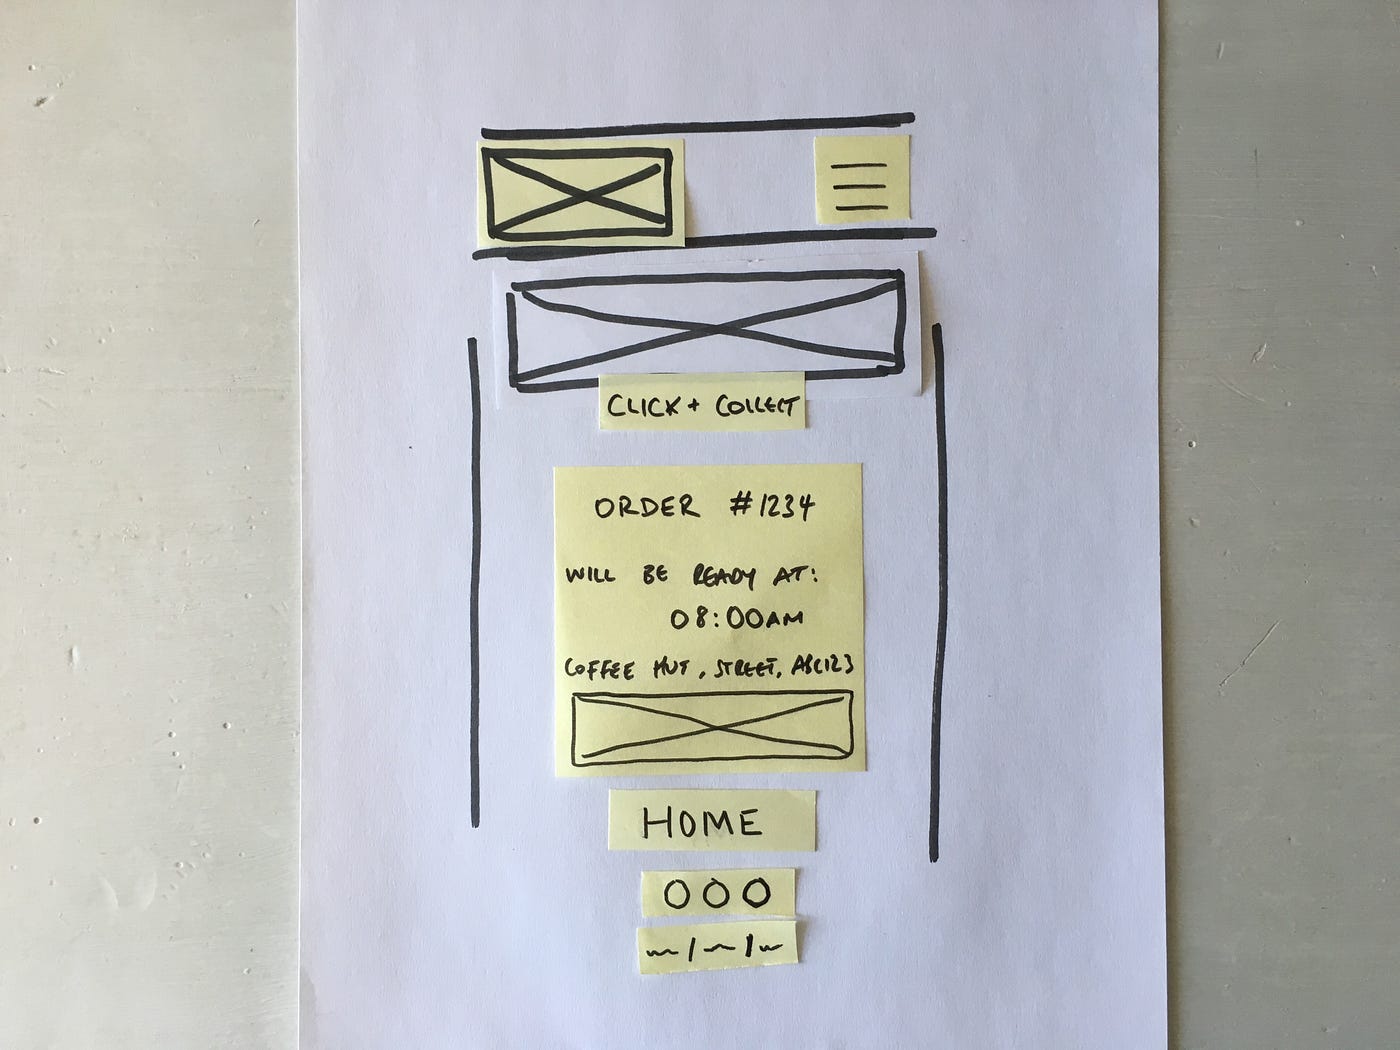 CLICK + COLLECT
ORDER #1234
WILL BE READY AT:
08:00AM
COFFEE HUT, STREET, ABC123
HOME